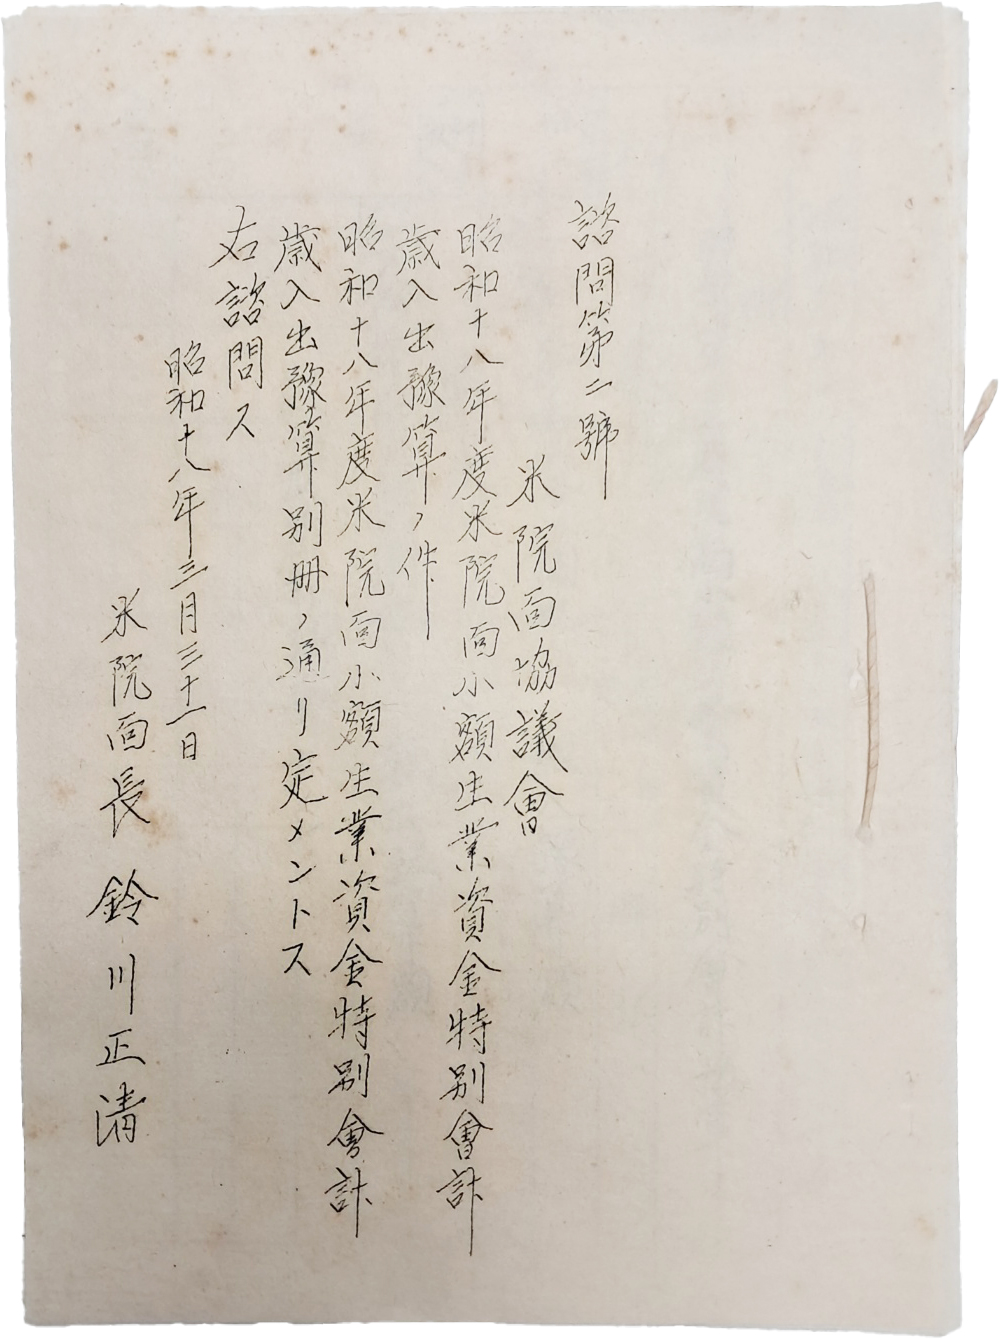 諮問第二號
米院面協議會
昭和十八年度米院面小額生業資金特別會計
歳入出豫算ノ件
昭和十八年度米院面小額生業資金特別會計
歳入出豫算別冊ノ通リ定メントス
右諮問ス
昭和十八年三月三十一日
米院面長 鈴川正清